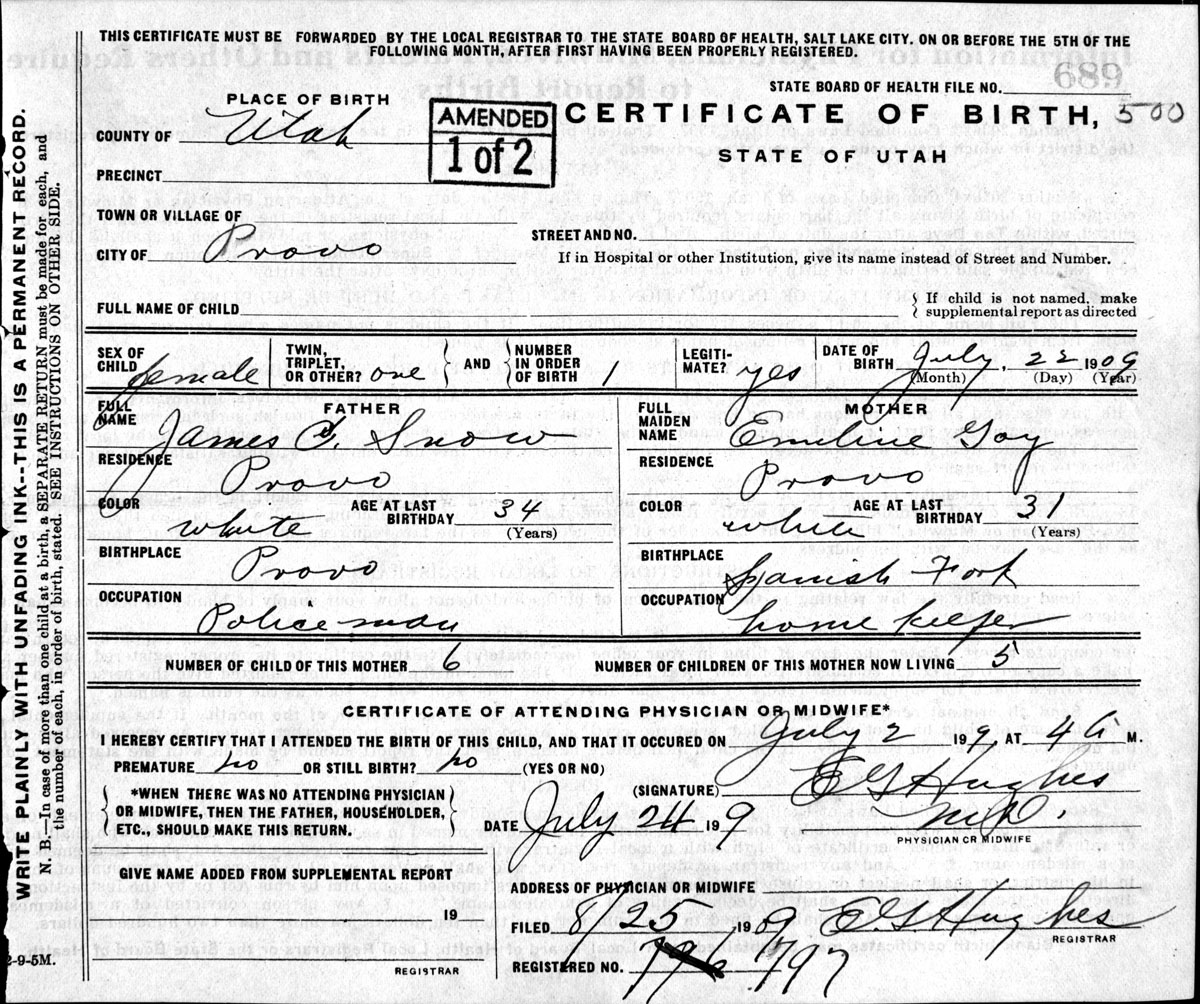 THIS CERTIFICATE MUST BE FORWARDED BY THE LOCAL REGISTRAR TO THE STATE BOARD OF HEALTH, SALT LAKE CITY, ON OR BEFORE THE 5TH OF THE
FOLLOWING MONTH, AFTER FIRST HAVING BEEN PROPERLY REGISTERED.
689
STATE BOARD OF HEALTH FILE NO.
PLACE OF BIRTH
COUNTY OF Utah
AMENDED
1 of 2
CERTIFICATE OF BIRTH, 500
STATE OF UTAH
PRECINCT
TOWN OR VILLAGE OF
STREET AND NO.
CITY OF Provo
If in Hospital or other Institution, give its name instead of Street and Number.
FULL NAME OF CHILD
If child is not named, make
supplemental report as directed
SEX OF CHILD female
TWIN, TRIPLET, OR OTHER? one
AND
NUMBER IN ORDER OF BIRTH 1
LEGITI-MATE? yes
DATE OF BIRTH July, 22 1909
(Month) (Day) (Year)
FULL NAME
FATHER
James G Snow
FULL MAIDEN NAME
MOTHER
Emiline Gay
RESIDENCE Provo
RESIDENCE Provo
COLOR white
AGE AT LAST BIRTHDAY 34
(Years)
COLOR white
AGE AT LAST BIRTHDAY 31
(Years)
BIRTHPLACE Provo
BIRTHPLACE Spanish Fork
OCCUPATION Police man
OCCUPATION home keeper
NUMBER OF CHILD OF THIS MOTHER 6
NUMBER OF CHILDREN OF THIS MOTHER NOW LIVING 5
CERTIFICATE OF ATTENDING PHYSICIAN OR MIDWIFE*
I HEREBY CERTIFY THAT I ATTENDED THE BIRTH OF THIS CHILD, AND THAT IT OCCURED ON July 2 199, AT 4 a M.
PREMATURE no OR STILL BIRTH? no (YES OR NO)
*WHEN THERE WAS NO ATTENDING PHYSICIAN
OR MIDWIFE, THEN THE FATHER, HOUSEHOLDER,
ETC., SHOULD MAKE THIS RETURN.
(SIGNATURE) E G Hughes
M.D.
PHYSICIAN OR MIDWIFE
DATE July 24 199
GIVE NAME ADDED FROM SUPPLEMENTAL REPORT
19
REGISTRAR
ADDRESS OF PHYSICIAN OR MIDWIFE
FILED 8/25, 1909 E G Hughes
REGISTRAR
REGISTERED NO. 197
WRITE PLAINLY WITH UNFADING INK--THIS IS A PERMANENT RECORD.
N. B.—In case of more than one child at a birth, a SEPARATE RETURN must be made for each, and
the number of each, in order of birth, stated. SEE INSTRUCTIONS ON OTHER SIDE.
2-9-5M.